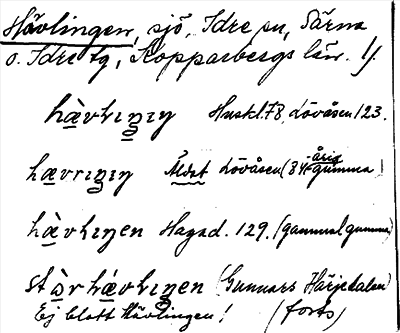 Hävlingen, sjö, Idre sn, Särna
o. Idre tg, Kopparbergs län. 1).
hàvlıŋıŋ Huskl. 78, Lövåsen 123.
hævrıŋıŋ Äldst Lövåsen (84-årig gumma)
hàvlıŋen Hagad. 129. (gammal gumma)
stòrhávlıŋen (Gunnars Härjedalen)
Ej blott Hävlingen! (forts)